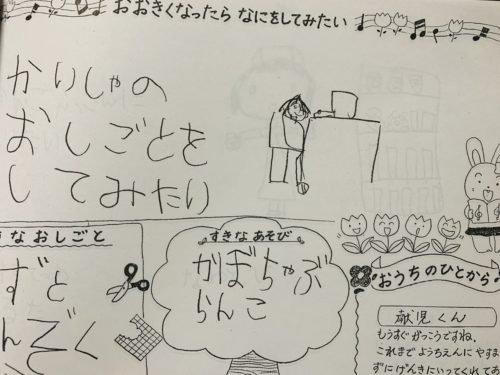 おおきくなったら なにをしてみたい
かりしゃの
おしごとを
してみたい
なおしごと
ずと
んぞく
すきな あそび
かぼちゃぶ
らんこ
おうちのひとから
献児くん
もうすぐがっこうですね、
これまで ようちえんに やすま
ずに げんきに いってくれて